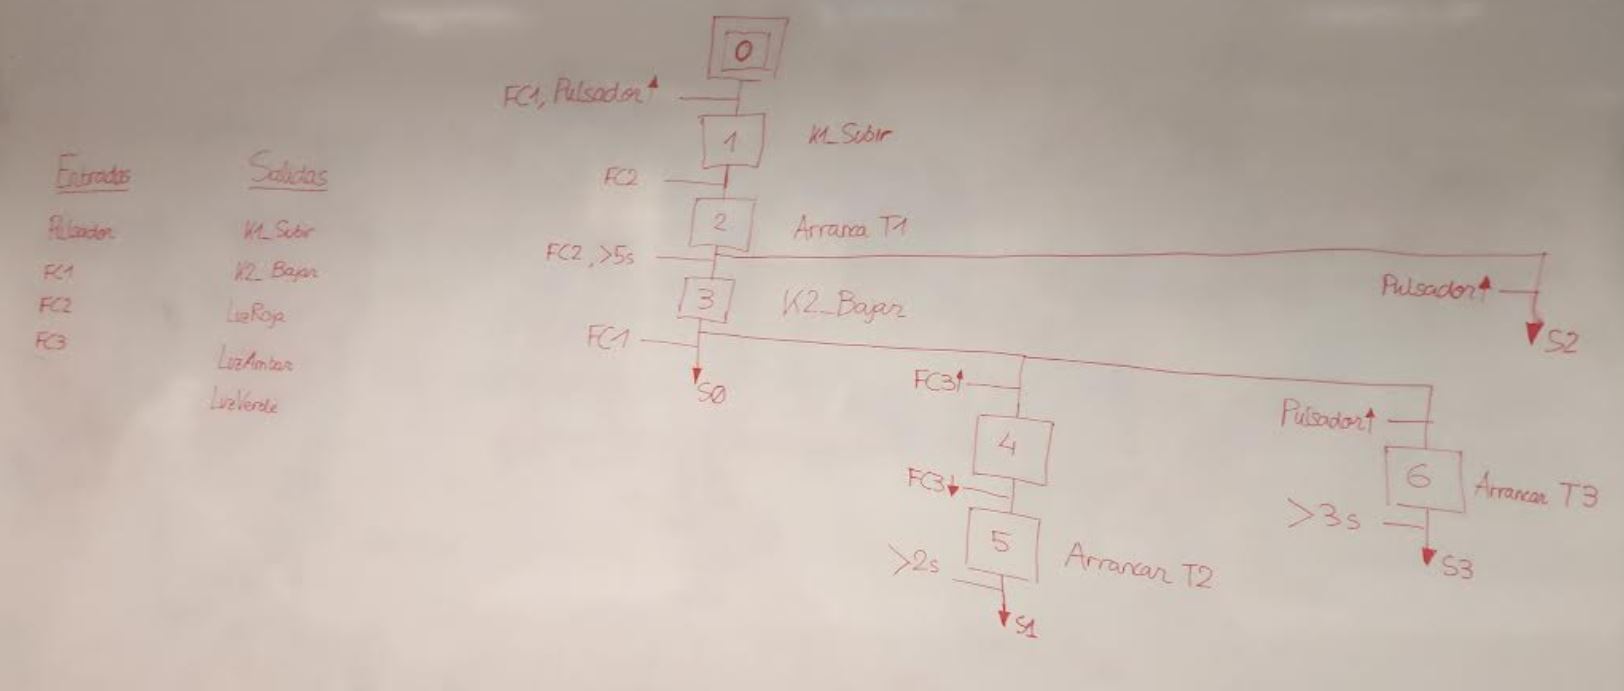 Entradas
Pulsador
FC1
FC2
FC3
Salidas
K1_Subir
K2_Bajar
LuzRoja
LuzAmbar
LuzVerde
0
FC1, Pulsador↑
1 K1_Subir
FC2
2 Arranca T1
FC2, >5s
Pulsador↑
S2
3 K2_Bajar
FC1
S0
FC3↑
4
FC3↓
5 Arrancar T2
>2s
S1
Pulsador↑
6 Arrancar T3
>3s
S3